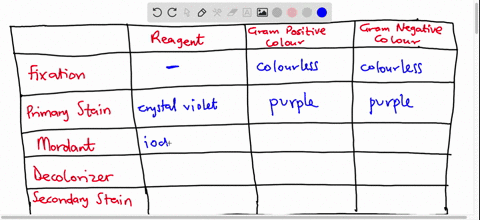 Reagent Gram Positive Colour Gram Negative Colour
Fixation – colourless colourless
Primary Stain crystal violet purple purple
Mordant iod
Decolorizer
Secondary Stain